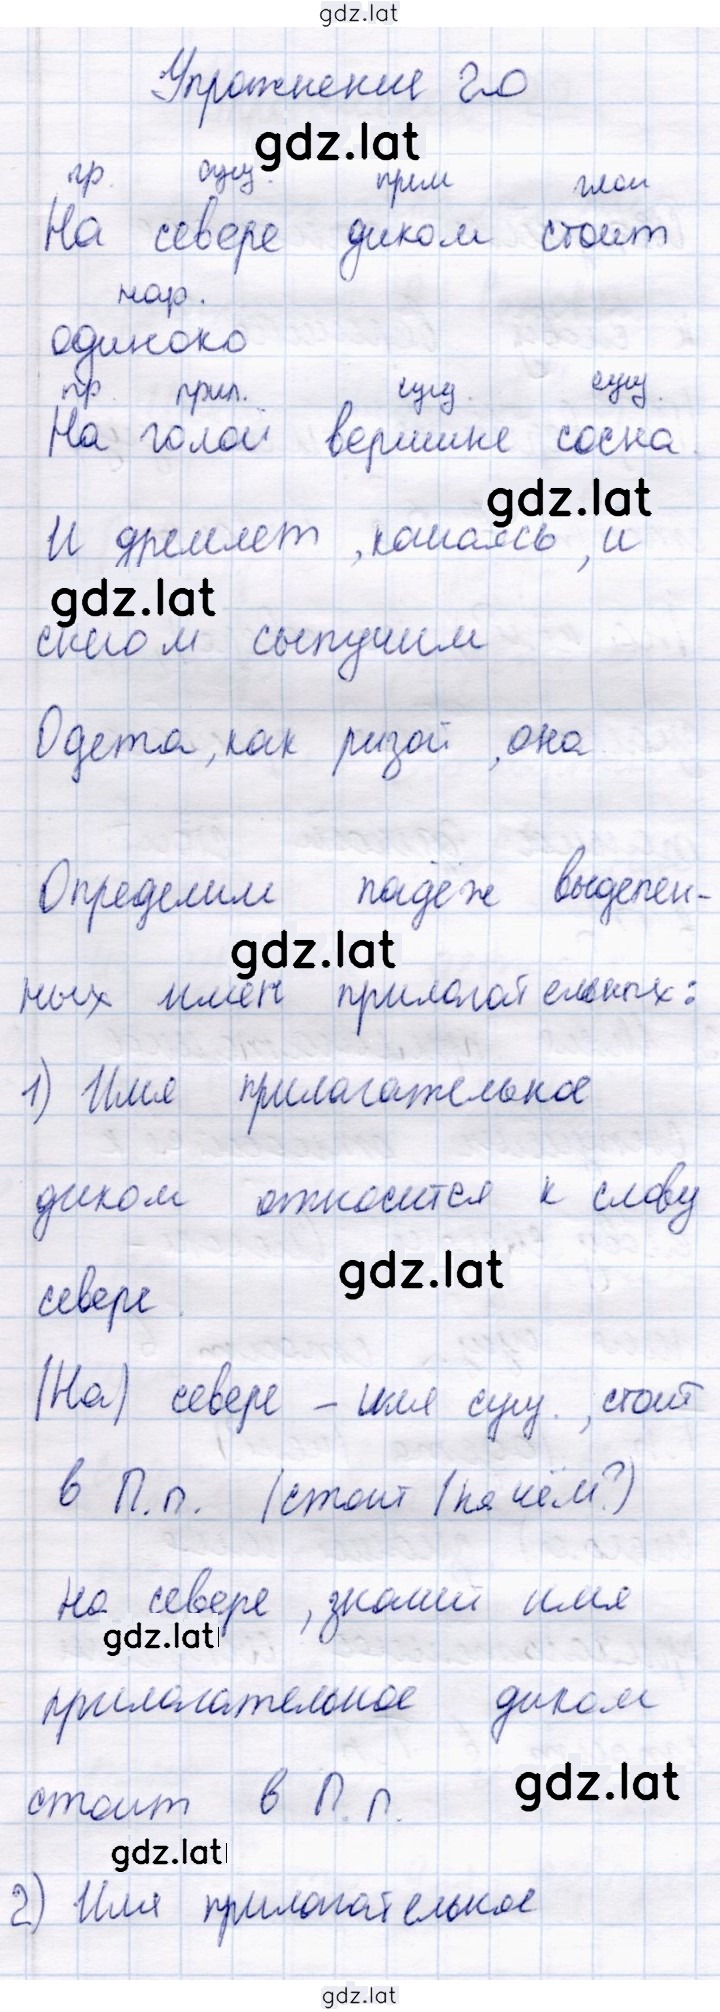 gdz.lat
Упражнение 20
gdz.lat
пр. сущ. прил глаг
На севере диком стоит
нар.
одиноко
пр. прил. сущ. сущ.
На голой вершине сосна.
gdz.lat
И дремлет, качаясь, и
gdz.lat
снегом сыпучим
Одета, как ризой, она.
Определим падеж выделен-
gdz.lat
ных имён прилагательных:
1) Имя прилагательное
диком относится к слову
gdz.lat
севере.
(На) севере – имя сущ., стоит
в П.п. (стоит (на чём?)
на севере, значит имя
gdz.lat
прилагательное диком
gdz.lat
стоит в П.п.
gdz.lat
2) Имя прилагательное
gdz.lat